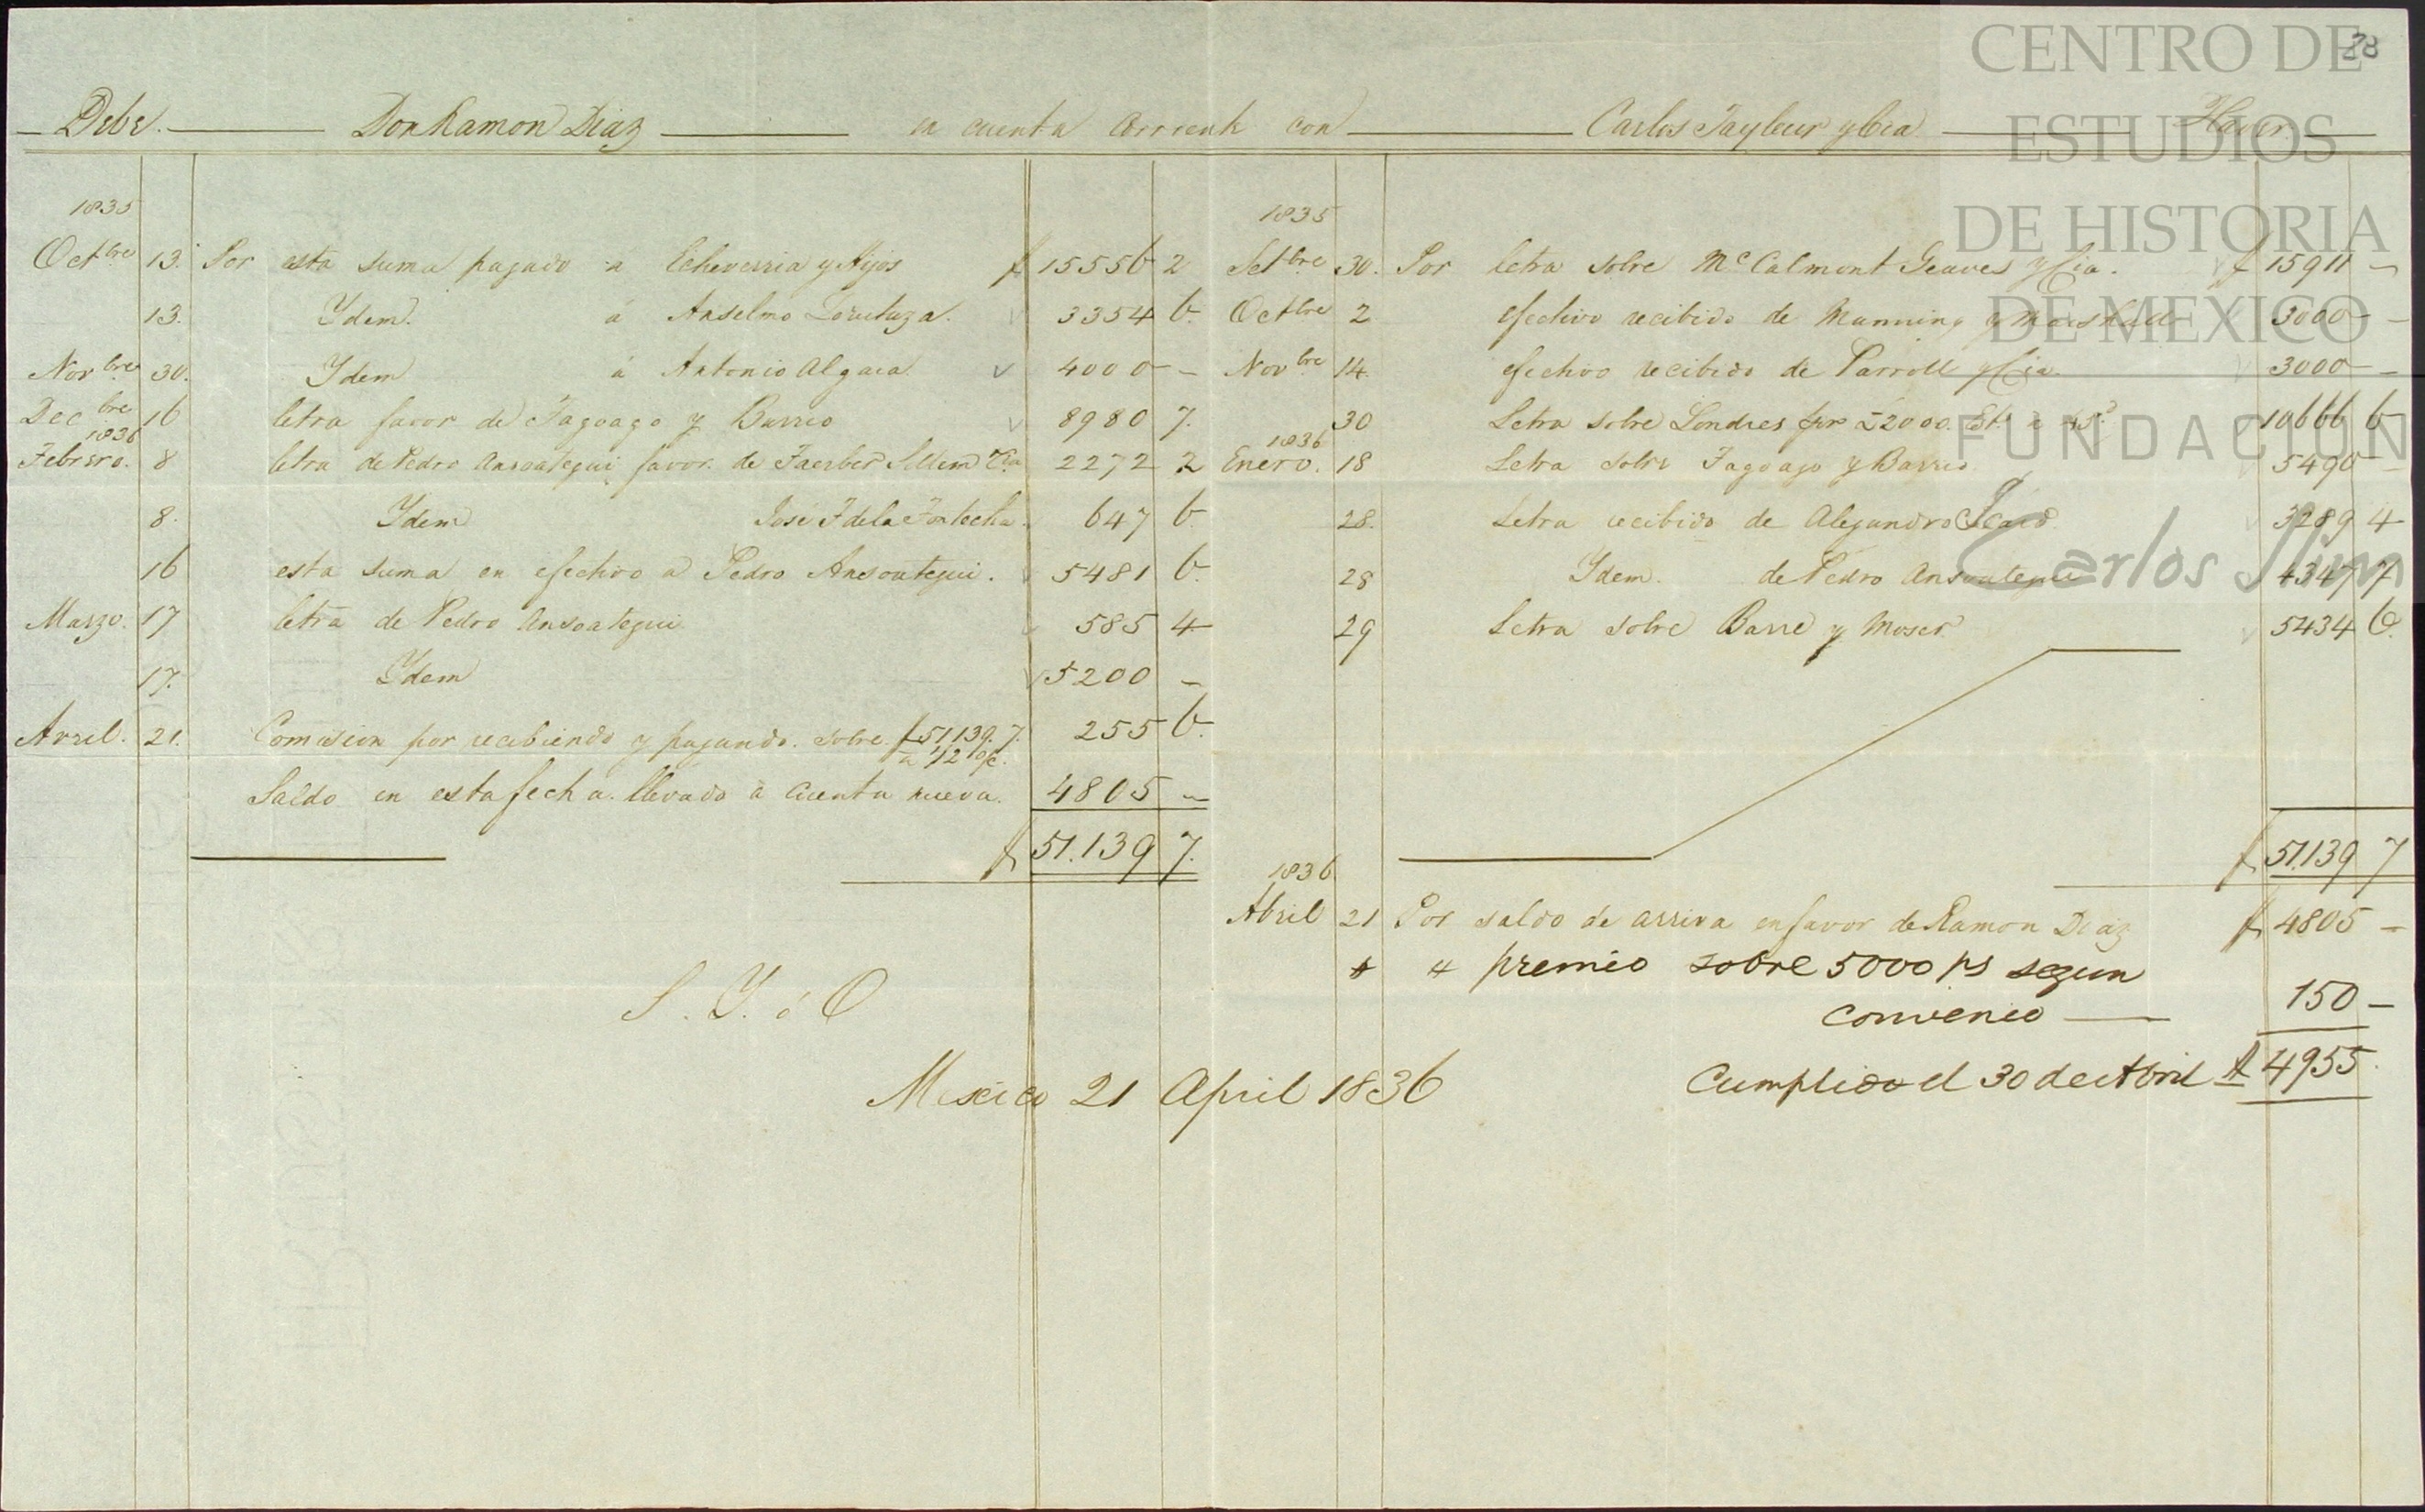 28
Debe. Don Ramon Diaz en cuenta corriente con Carlos Tayleur y Cia Haver
1835
Octbre 13. Por esta suma pagado a Echeverria y Hijos $ 15556 2
13. Ydem. á Anselmo Zurutuza. 3354 6.
Novbre 30. Ydem á Antonio Algara 4000 –
Decbre 16 letra favor de Fagoaga y Barrio 8980 7.
1836
Febrero. 8 letra de Pedro Ansoategui favor de Faerber Sillem Ca 2272 2
8. Ydem José F de la 647 6.
16 esta suma en efectivo a Pedro Ansoategui. 5481 6.
Marzo. 17 letra de Pedro Ansoategui 585 4
17. Ydem 5200 –
Avril. 21. Comision por recibiendo y pagando. sobre. $51,139.7.
a 1/2 %. 255 6.
Saldo en esta fecha. llevado a cuenta nueva. 4805 –
$ 51.139 7.
S. Y. ó O
1835
Setbre 30. Por letra sobre McCalmont Geaves y Cia. $ 15911 –
Octbre 2 efectivo recibido de Manning y Marshall 3000 –
Novbre 14. efectivo recibido de Parrott y Cia 3000 –
30 Letra sobre Londres por £2000. St. a 45d 10666 6
1836
Enero. 18 Letra sobre Fagoaga y Barrio 5490 –
28. Letra recibido de Alejandro 3289 4
28 Ydem. de Pedro Ansoategui 4347 7
29 Letra sobre Barre y Moser 5434 6.
$ 51.139 7
1836
Abril 21 Por saldo de arriva en favor de Ramon Diaz $ 4805 –
" " premio sobre 5000 ps segun
convenio 150 –
Cumplido el 30 de Abril $ 4955.
Mexico 21 April 1836
CENTRO DE
ESTUDIOS
DE HISTORIA
DE MEXICO
FUNDACION
Carlos Slim